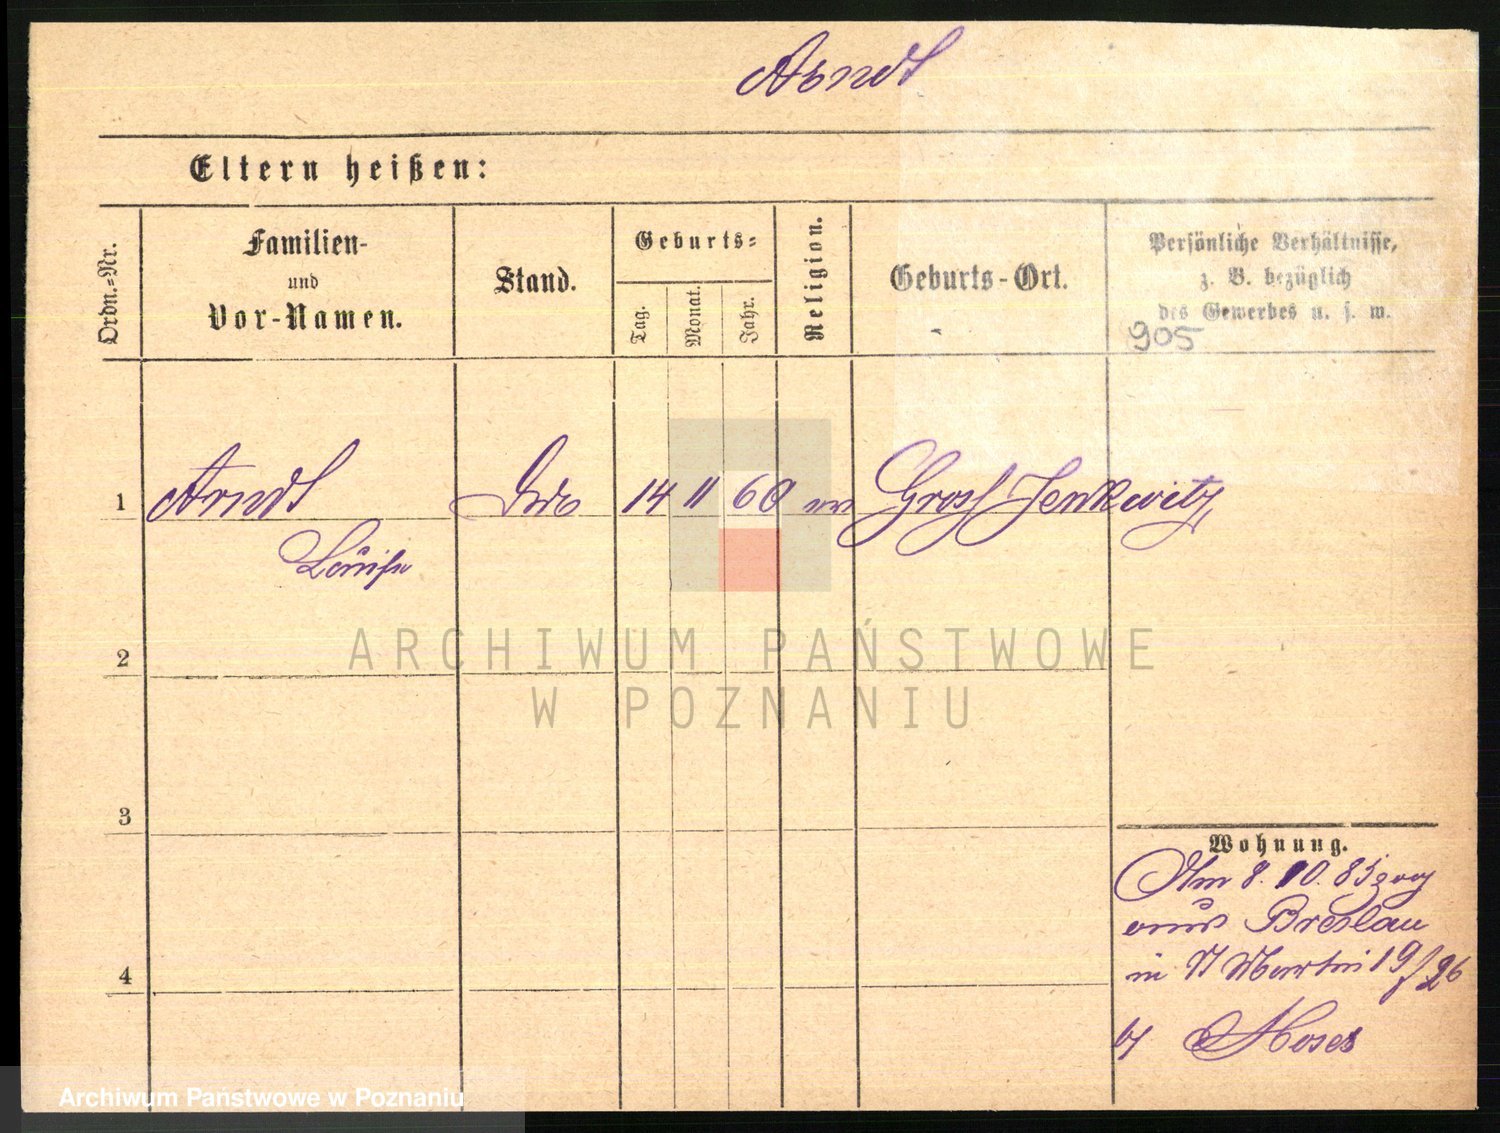 Arndt
Eltern heißen:
Ordn.-Nr.
Familien-
und
Vor-Namen.
Stand.
Geburts-
Tag.
Monat.
Jahr.
Religion.
Geburts-Ort.
Persönliche Verhältnisse,
z. B. bezüglich
des Gewerbes u. s. w.
905
1 Arndt 14 11 60 ev Gross Jenkwitz
Louise
2
3
4
Wohnung.
Am 8. 10. 85 zog
aus Breslau
in St Martin 19/26
Moses
ARCHIWUM PAŃSTWOWE
W POZNANIU
Archiwum Państwowe w Poznaniu